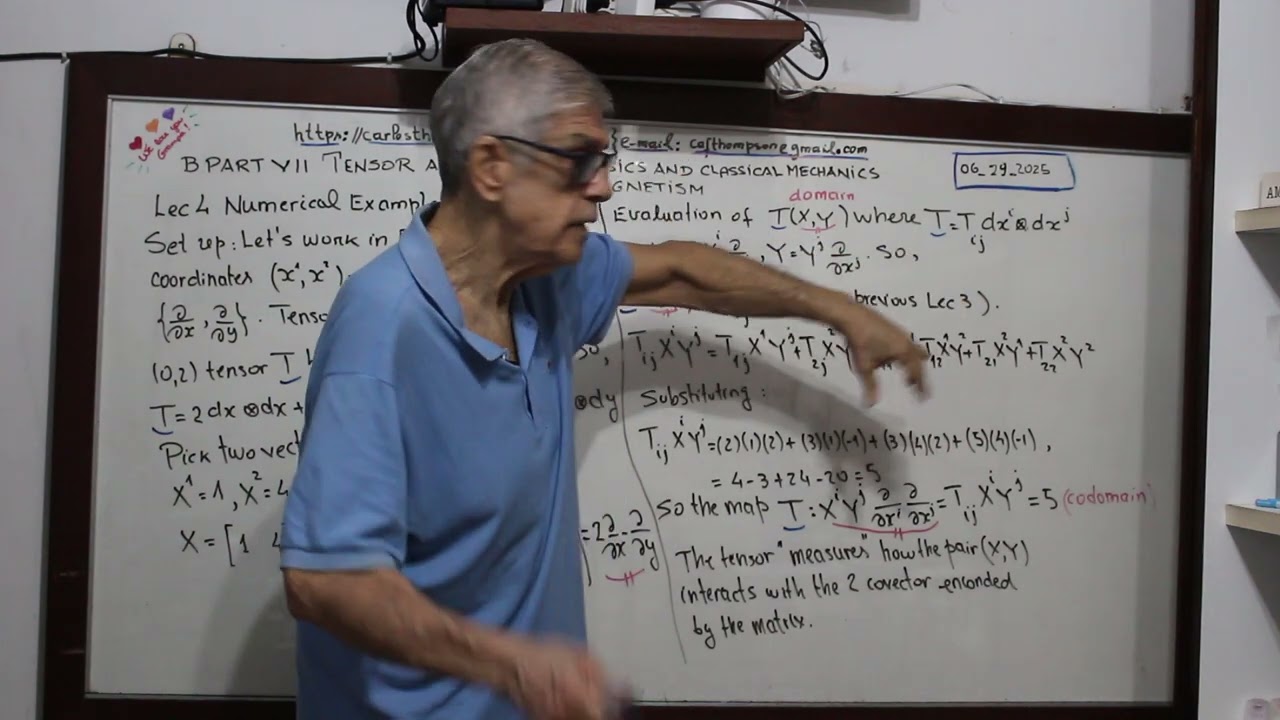 https://carlosth
} e-mail: casthompson@gmail.com
B PART VII TENSOR A
ICS AND CLASSICAL MECHANICS
GNETISM
06_29_2025
Lec 4 Numerical Exampl
Set up: Let's work in
coordinates (x¹, x²)
{∂/∂x, ∂/∂y}. Tenso
(0,2) tensor T
so,
T = 2 dx⊗dx +
⊗dy
Pick two vect
X¹=1, X²=4
X = [1 4
= 2∂/∂x - ∂/∂y
domain
Evaluation of T(X,Y) where T = T_ij dx^i ⊗ dx^j
∂, Y = Y^j ∂/∂x^j. So,
previous Lec 3).
T_ij X^i Y^j = T_1j X¹Y^j + T_2j X²Y
T_12 X¹Y² + T_21 X²Y¹ + T_22 X²Y²
Substituting:
T_ij X^i Y^j = (2)(1)(2) + (3)(1)(-1) + (3)(4)(2) + (5)(4)(-1),
= 4 - 3 + 24 - 20 = 5
So the map T : X^i Y^j ∂/∂x^i ∂/∂x^j = T_ij X^i Y^j = 5 (codomain)
The tensor "measures" how the pair (X,Y)
interacts with the 2 covector enconded
by the matrix.